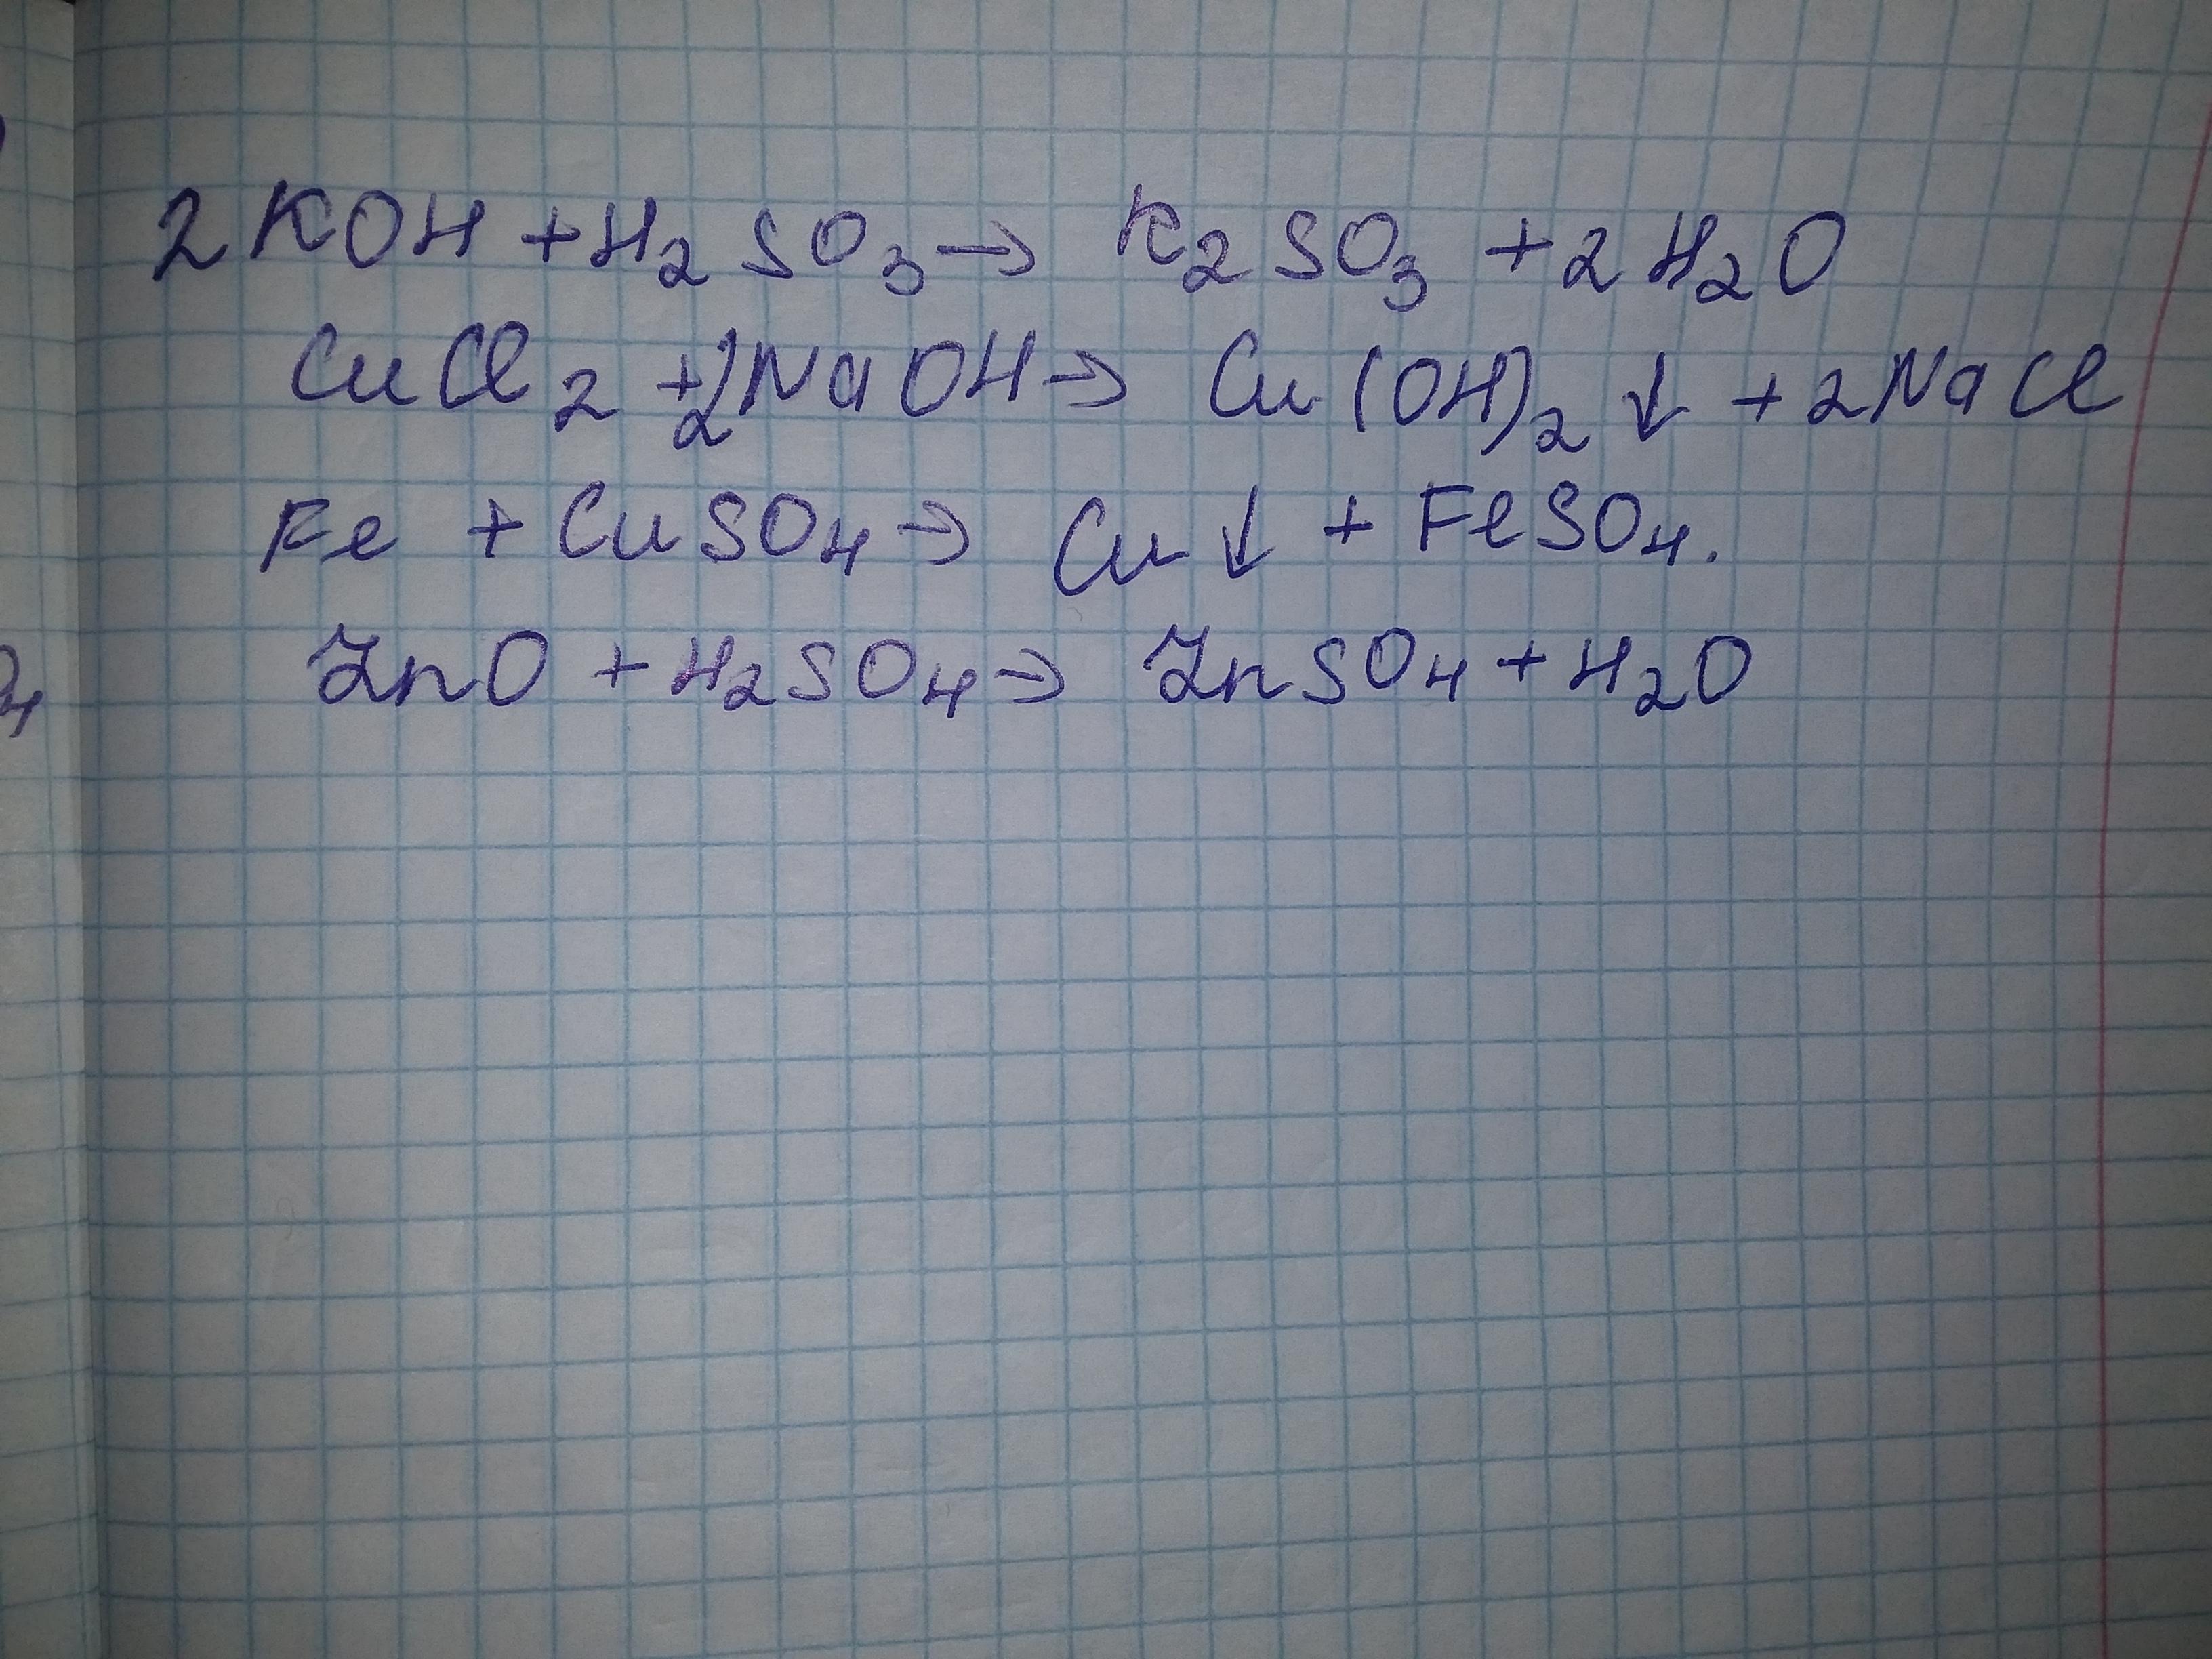 2KOH + H₂SO₃ → K₂SO₃ + 2H₂O
CuCl₂ + 2NaOH → Cu(OH)₂ ↓ + 2NaCl
Fe + CuSO₄ → Cu ↓ + FeSO₄.
ZnO + H₂SO₄ → ZnSO₄ + H₂O
₄